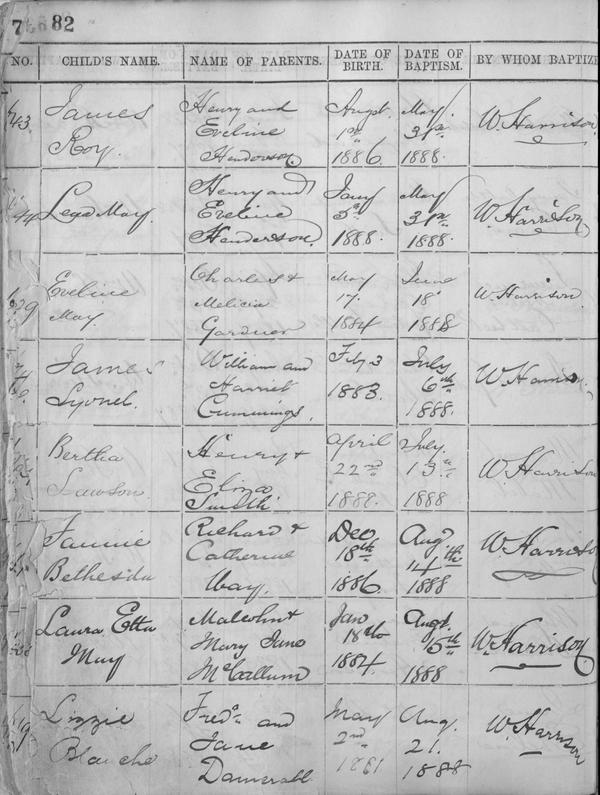 82
NO. CHILD'S NAME. NAME OF PARENTS. DATE OF BIRTH. DATE OF BAPTISM. BY WHOM BAPTIZE
James Henry and Augst. May. W. Harrison
Roy. Eveline 1st 31st
Henderson 1886. 1888.
May. Henry and Jany May W. Harrison
Eveline 3d 31st
Henderson. 1888. 1888.
Eveline Charles & May June W. Harrison.
May. Melicia 17. 18
Gardner 1884 1888
James William and Feby 3 July W Harrison.
Lyonel. Harriet 1883. 6th
Cummings. 1888.
Bertha Henry & April July. W Harrison
Lawson. Eliza 22nd 13th
Smith 1888. 1888
Fannie Richard & Dec Aug W. Harrison
Bethesda Catherine 18th 14th
Way. 1886. 1888
Laura Etta Malcolm & Jan Augt. W. Harrison
May Mary Jane 18th 15th
McCallum 1884. 1888
Lizzie Fredk and May Aug. W Harrison
Blanche Jane 2nd 21.
1881 1888